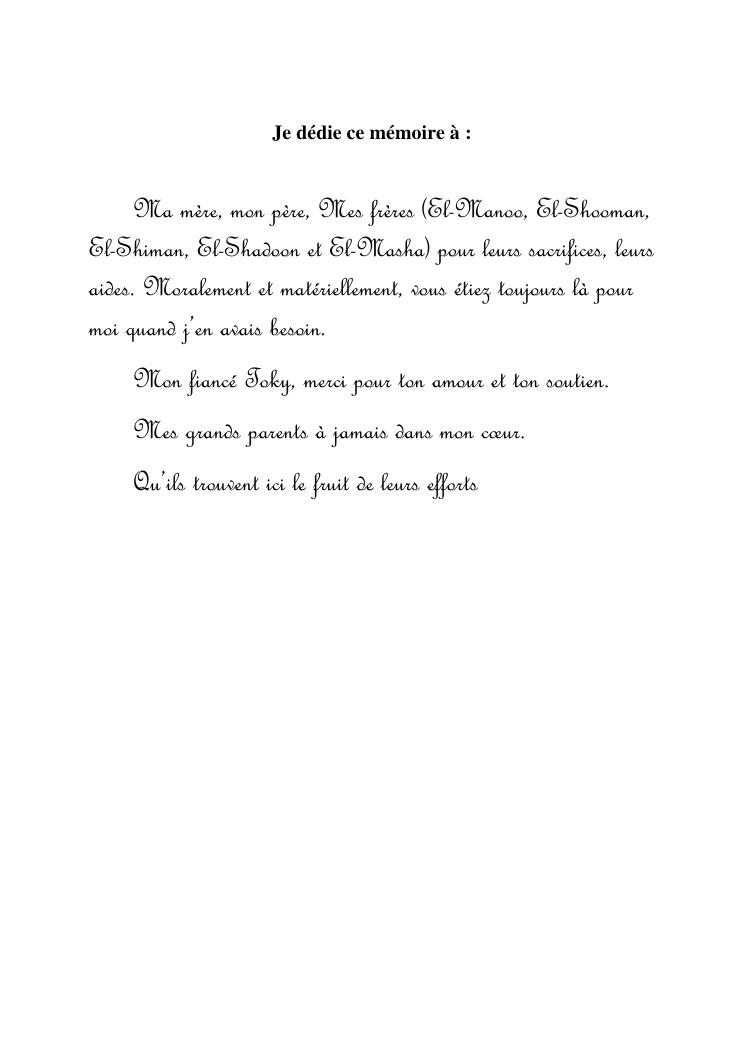 Je dédie ce mémoire à :
Ma mère, mon père, Mes frères (El-Manoo, El-Shooman,
El-Shiman, El-Shadoon et El-Masha) pour leurs sacrifices, leurs
aides. Moralement et matériellement, vous étiez toujours là pour
moi quand j'en avais besoin.
Mon fiancé Toky, merci pour ton amour et ton soutien.
Mes grands parents à jamais dans mon cœur.
Qu'ils trouvent ici le fruit de leurs efforts